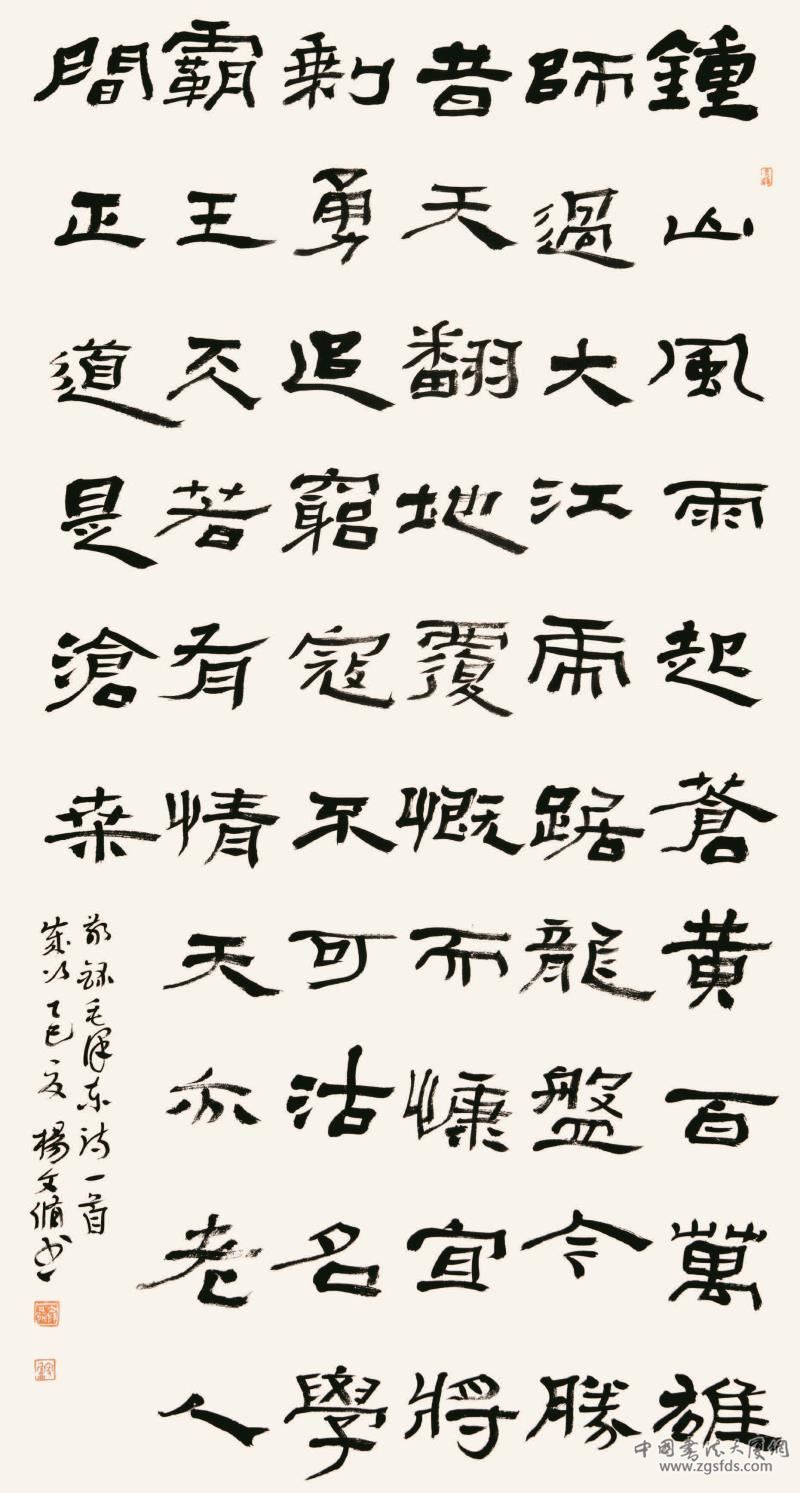 鍾山風雨起蒼黃百萬雄
師過大江虎踞龍盤今勝
昔天翻地覆慨而慷宜將
剩勇追窮寇不可沽名學
霸王天若有情天亦老人
間正道是滄桑
敬錄毛澤東詩一首
歲次乙巳夏楊文脩書
中國書法大厦網
www.zgsfds.com